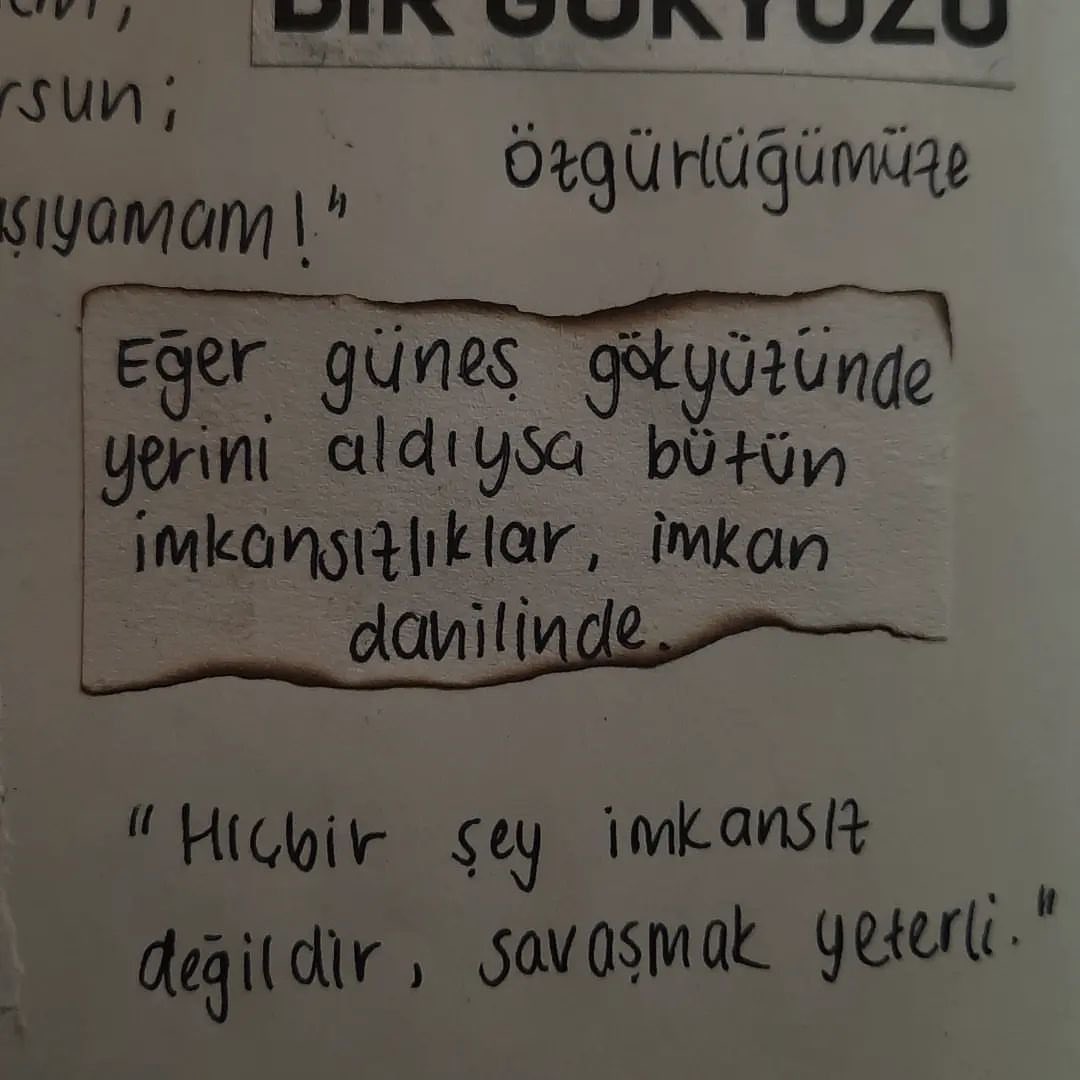 BİR GÖKYÜZÜ
rsun;
özgürlüğümüze
aşıyamam!"
Eğer güneş gökyüzünde
yerini aldıysa bütün
imkansızlıklar, imkan
dahilinde.
"Hiçbir şey imkansız
değildir, savaşmak yeterli."